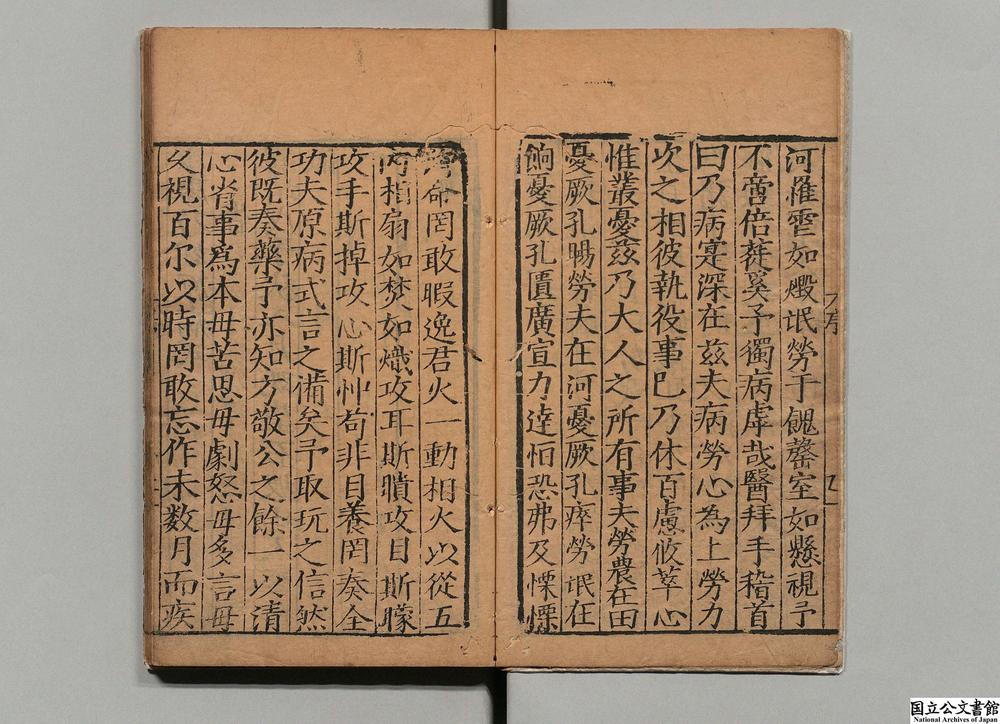 河罹霍如燬氓勞于餽罄室如懸視予
不啻倍蓰奚予獨病虖哉醫拜手稽首
曰乃病寔深在茲夫病勞心為上勞力
次之相彼執役事已乃休百慮攸萃心
惟叢憂茲乃大人之所有事夫勞農在田
憂厥孔暘勞夫在河憂厥孔瘁勞氓在
餉憂厥孔匱廣宣力達怕恐弗及慄慄
命罔敢暇逸君火一動相火以從五
內相扇如焚如熾攻耳斯聵攻目斯矇
攻手斯掉攻心斯忡苟非目養罔奏全
功夫原病式言之備矣予取玩之信然
彼既奏藥予亦知方敬公之餘一以清
心省事爲本毋苦思毋劇怒毋多言毋
久視百尔以時罔敢忘作未数月而疾
序
国立公文書館
National Archives of Japan